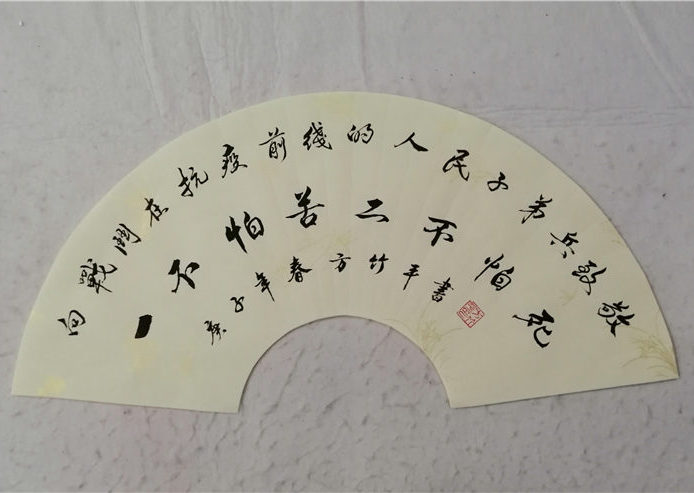 向戰鬪在抗疫前綫的人民子弟兵致敬
一不怕苦二不怕死
庚子年春方竹平書